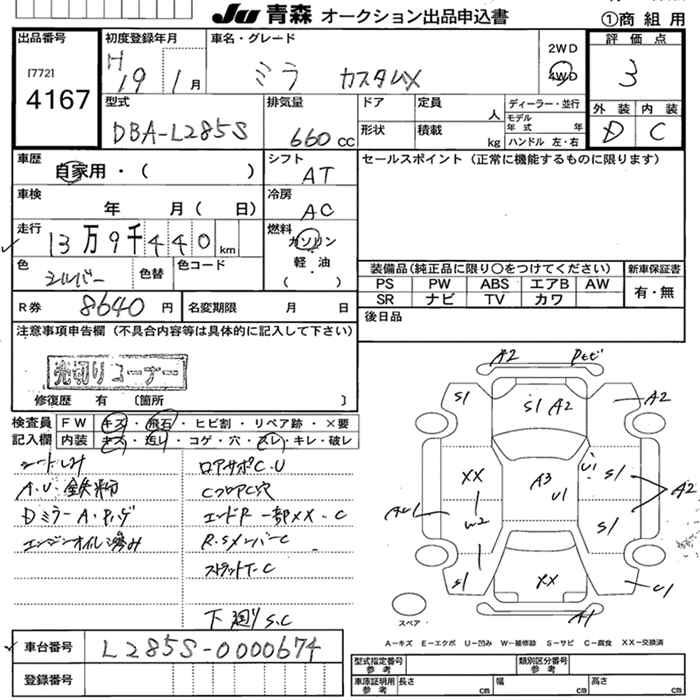 JU 青森 オークション出品申込書
①商 組 用
出品番号
[772]
4167
初度登録年月
H
19 1 月
車名・グレード
ミラ カスタムX
2WD
4WD
評価点
3
外装 内装
D C
型式
DBA-L285S
排気量
660 cc
ドア
定員
人
形状
積載
kg
ディーラー・並行
モデル
年 式 年
ハンドル 左・右
車歴
自家用・( )
シフト
AT
セールスポイント(正常に機能するものに限ります)
車検
年 月( 日)
冷房
AC
走行
13万9千440 km
燃料
ガソリン
・
軽 油
・
( )
色
シルバー
色替
色コード
装備品(純正品に限り○をつけてください)
新車保証書
PS PW ABS エアB AW
SR ナビ TV カワ
有・無
R券 8640 円
名変期限 月 日
後日品
注意事項申告欄(不具合内容等は具体的に記入して下さい)
売切りコーナー
修復歴 有 [箇所 ]
検査員
記入欄
FW キズ・飛石・ヒビ割・リペア跡・×要
内装 キズ・汚レ・コゲ・穴・スレ・キレ・破レ
シートしみ
A.U.鉄粉
エンジンオイル滲み
ロアサポC.U
CフロアC穴
エンドP一部XX.C
R.SメンバーC
ストラットT.C
下廻りS.C
A2
S1
S1 A2
A2
XX
W2
A3
U1
U1
S1
S1
A2
S1
XX
U1
A1
スペア
A=キズ E=エクボ U=凹み W=補修跡 S=サビ C=腐食 XX=交換済
車台番号
L285S-0000674
登録番号
型式指定番号
参考
類別区分番号
参考
車庫証明用
参考
長さ cm
幅 cm
高さ cm